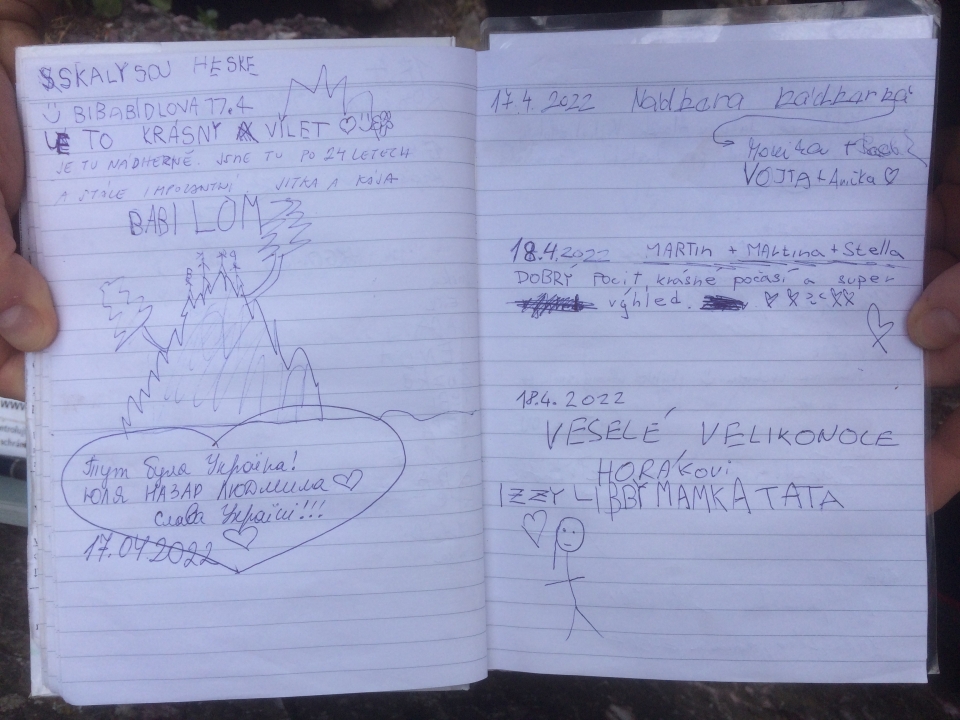 SKALY SOU HESKE
BIBABIDLOVA 17.4
JE TO KRASNY VÍLET
JE TU NÁDHERNĚ. JSME TU PO 24 LETECH
A STÁLE IMPOZANTNÍ. JITKA A KÁJA
BABI LOM
Тут була Україна!
ЮЛЯ НАЗАР ЛЮДМИЛА
Слава Україні!!!
17.04 2022
17.4. 2022 Nádhera
Monika +
VOJTA + Anička
18.4.2022 MARTIN + MARtina + Stella
DOBRÝ Pocit krásné počasí a super
výhled.
18.4. 2022
VESELÉ VELIKONOCE
HORÁKOVI
IZZY LIBBY MAMKA TATA